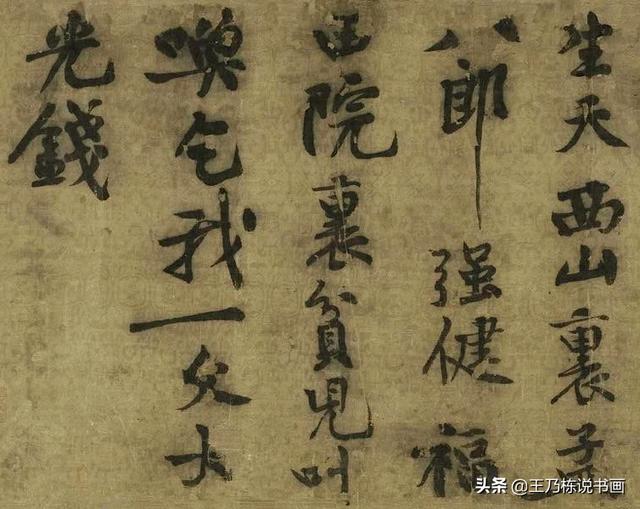 生天西山裏孟
八郎强健福
田院裏貧兒叫
喚乞我一文大
光錢
头条 @王乃栋说书画